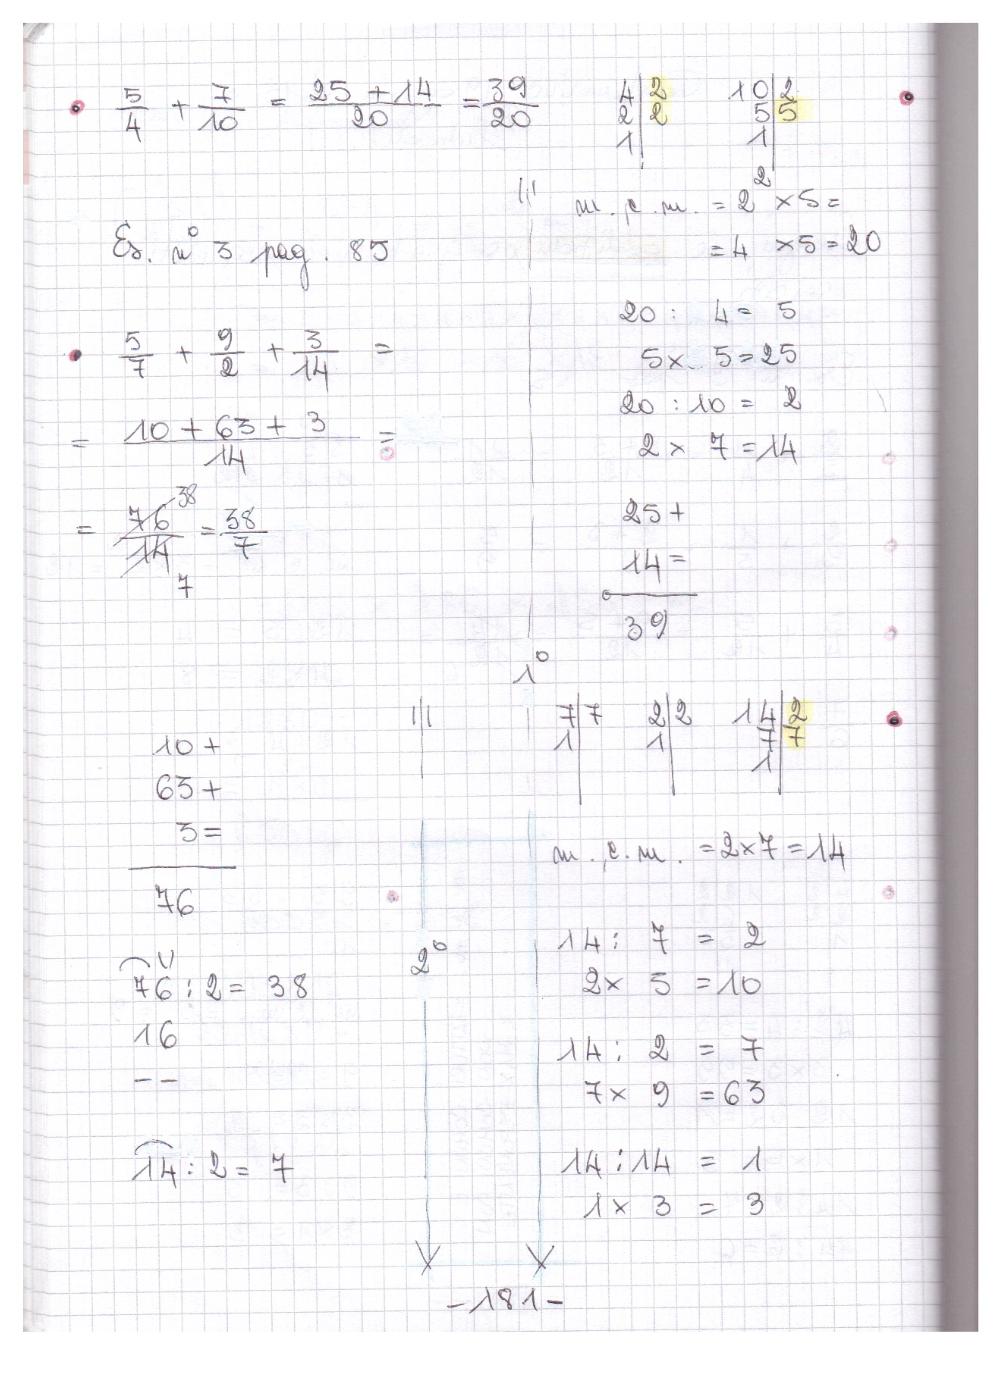 5/4 + 7/10 = 25 + 14/20 = 39/20
4 | 2
2 | 2
1 |
10 | 2
5 | 5
1 |
m.c.m. = 2² × 5 =
= 4 × 5 = 20
20 : 4 = 5
5 × 5 = 25
20 : 10 = 2
2 × 7 = 14
25 +
14 =
39
Es. n° 3 pag. 85
5/7 + 9/2 + 3/14 =
= 10 + 63 + 3/14 =
= 76/14 38 7 = 38/7
1°
7 | 7
1 |
2 | 2
1 |
14 | 2
7 | 7
1 |
m.c.m. = 2×7 = 14
14 : 7 = 2
2 × 5 = 10
14 : 2 = 7
7 × 9 = 63
14 : 14 = 1
1 × 3 = 3
10 +
63 +
3 =
76
2°
76 : 2 = 38
16
--
14 : 2 = 7
-181-